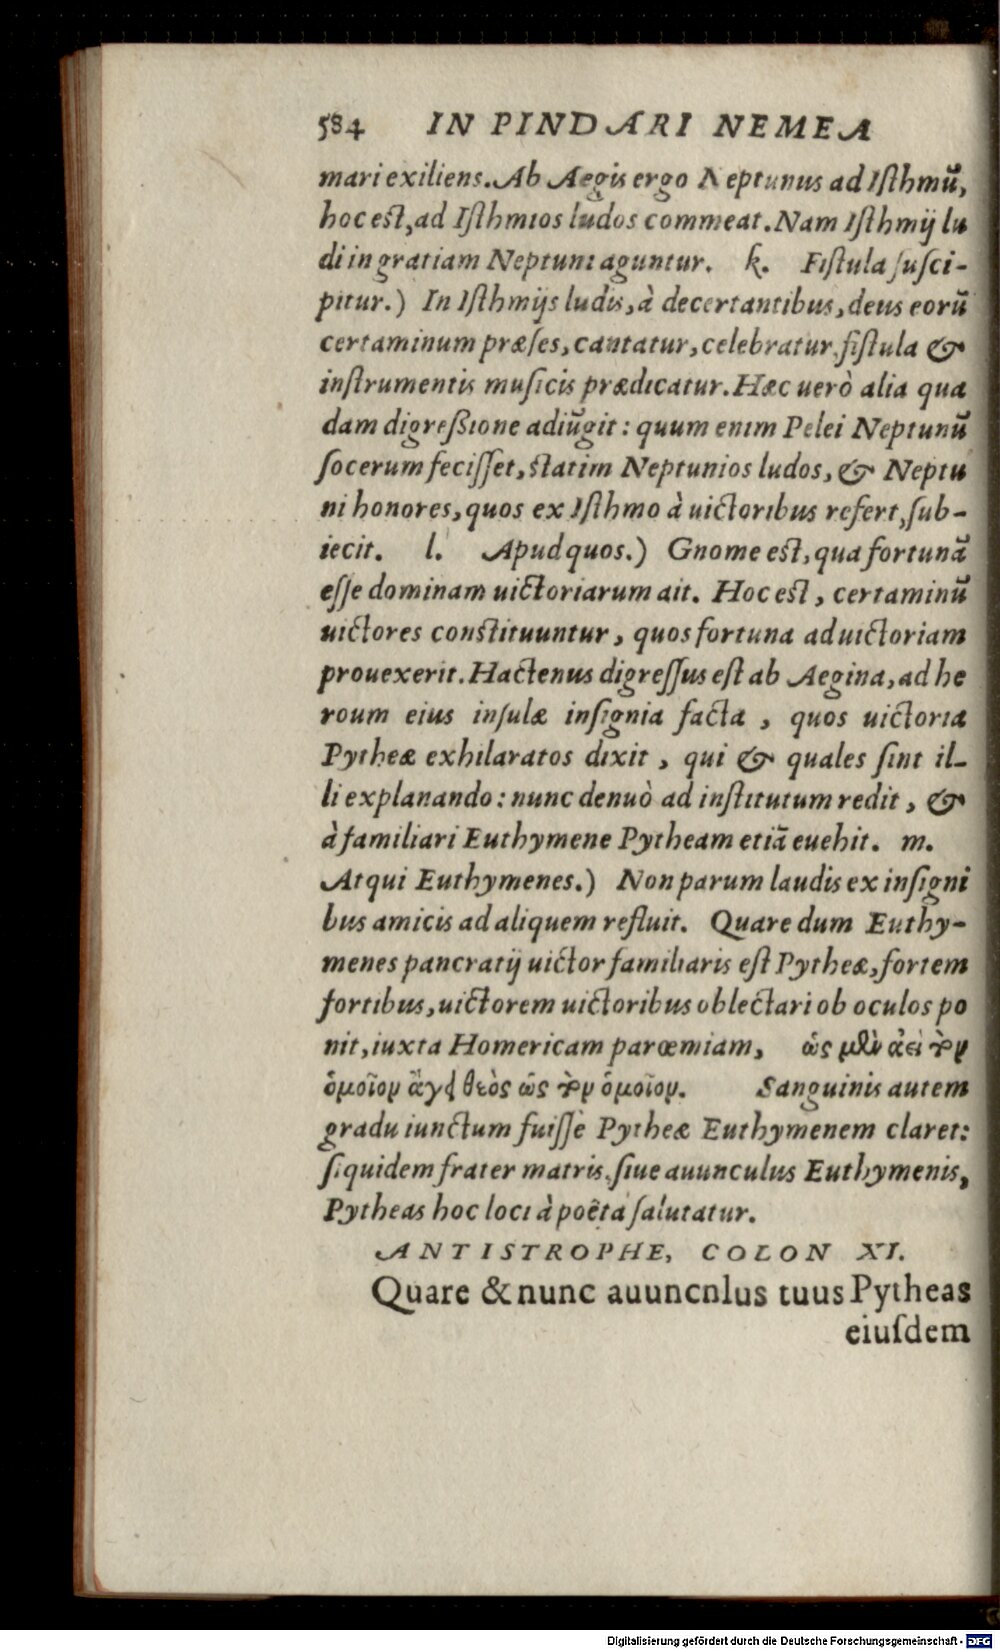 584 IN PINDARI NEMEA
mari exiliens. Ab Aegis ergo Neptunus ad Iſthmū,
hoc eſt, ad Iſthmios ludos commeat. Nam Iſthmij lu
di in gratiam Neptuni aguntur. k. Fiſtula ſuſci-
pitur.) In Iſthmijs ludis, à decertantibus, deus eorū
certaminum præſes, cantatur, celebratur, fiſtula &
inſtrumentis muſicis prædicatur. Hæc uerò alia qua
dam digreßione adiūgit: quum enim Pelei Neptunū
ſocerum feciſſet, ſtatim Neptunios ludos, & Neptu
ni honores, quos ex Iſthmo à uictoribus refert, ſub-
iecit. l. Apud quos.) Gnome eſt, qua fortunā
eſſe dominam uictoriarum ait. Hoc eſt, certaminū
uictores conſtituuntur, quos fortuna ad uictoriam
prouexerit. Hactenus digreſſus eſt ab Aegina, ad he
roum eius inſulæ inſignia facta, quos uictoria
Pytheæ exhilaratos dixit, qui & quales ſint il-
li explanando: nunc denuò ad inſtitutum redit, &
à familiari Euthymene Pytheam etiā euehit. m.
Atqui Euthymenes.) Non parum laudis ex inſigni
bus amicis ad aliquem refluit. Quare dum Euthy-
menes pancratij uictor familiaris eſt Pytheæ, fortem
fortibus, uictorem uictoribus oblectari ob oculos po
nit, iuxta Homericam parœmiam, ὡς μὲν ἀεὶ τὸν
ὁμοῖον ἄγει θεὸς ὡς τὸν ὁμοῖον. Sanguinis autem
gradu iunctum fuiſſe Pytheæ Euthymenem claret:
ſiquidem frater matris, ſiue auunculus Euthymenis,
Pytheas hoc loci à poëta ſalutatur.
ANTISTROPHE, COLON XI.
Quare & nunc auuncnlus tuus Pytheas
eiuſdem
Digitalisierung gefördert durch die Deutsche Forschungsgemeinschaft - DFG